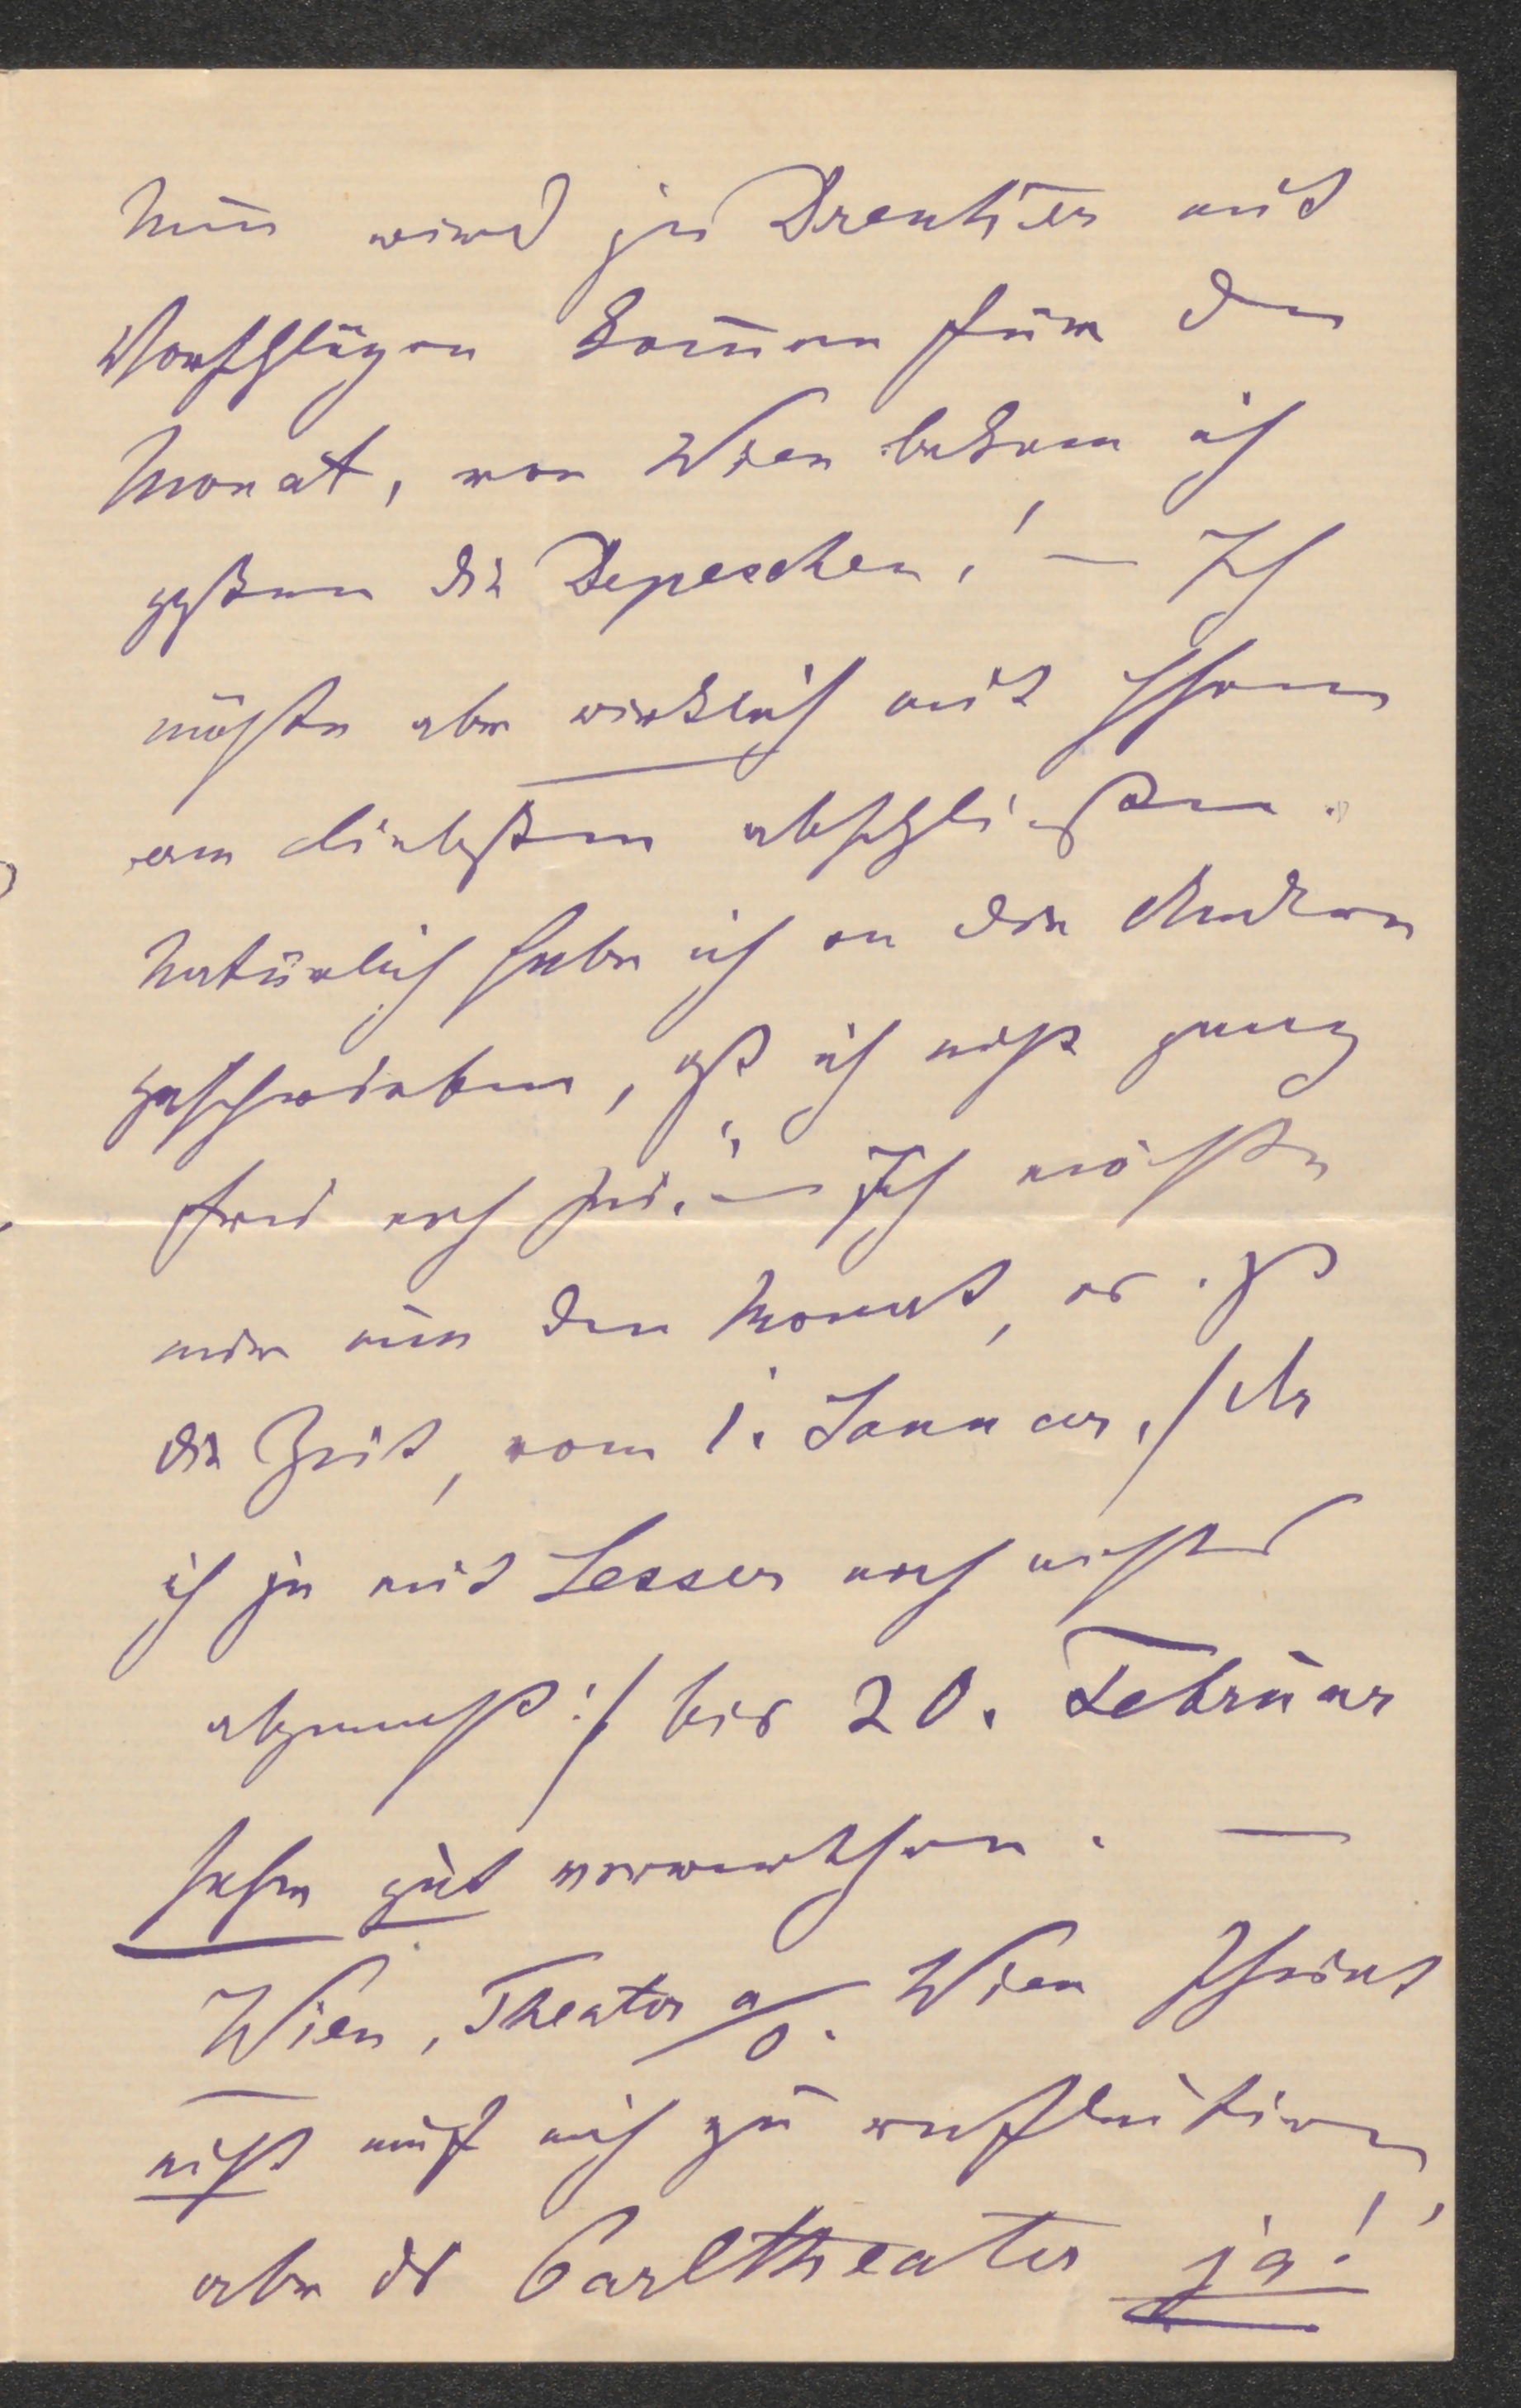 Nun wird ja Drentier mit
Vorschlägen kom̄en für den
Monat, von Wien bekam ich
gestern die Depeschen! — Ich
möchte aber wirklich mit Ihnen
am liebsten abschließen.
Natürlich habe ich an die Andern
geschrieben, daß ich nicht ganz
frei noch sei. — Ich möchte
mir nun den Monat, es ist
die Zeit, vom 1. Januar, /: da
ich ja mit Lesser noch nichts
abgemacht :/ bis 20. Februar
sehr gut verwerthen. —
Wien, Theater a/d. Wien scheint
nicht auf mich zu reflectiren,
aber das Carltheater ja!